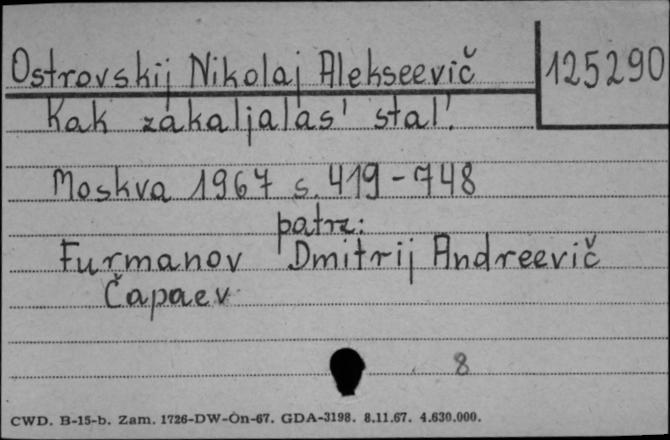 Ostrovskij Nikolaj Alekseevič
125290
Kak zakaljalas' stal'.
Moskva 1967 s. 419-748
patrz:
Furmanov Dmitrij Andreevič
Čapaev
8
CWD. B-15-b. Zam. 1726-DW-On-67. GDA-3198. 8.11.67. 4.630.000.